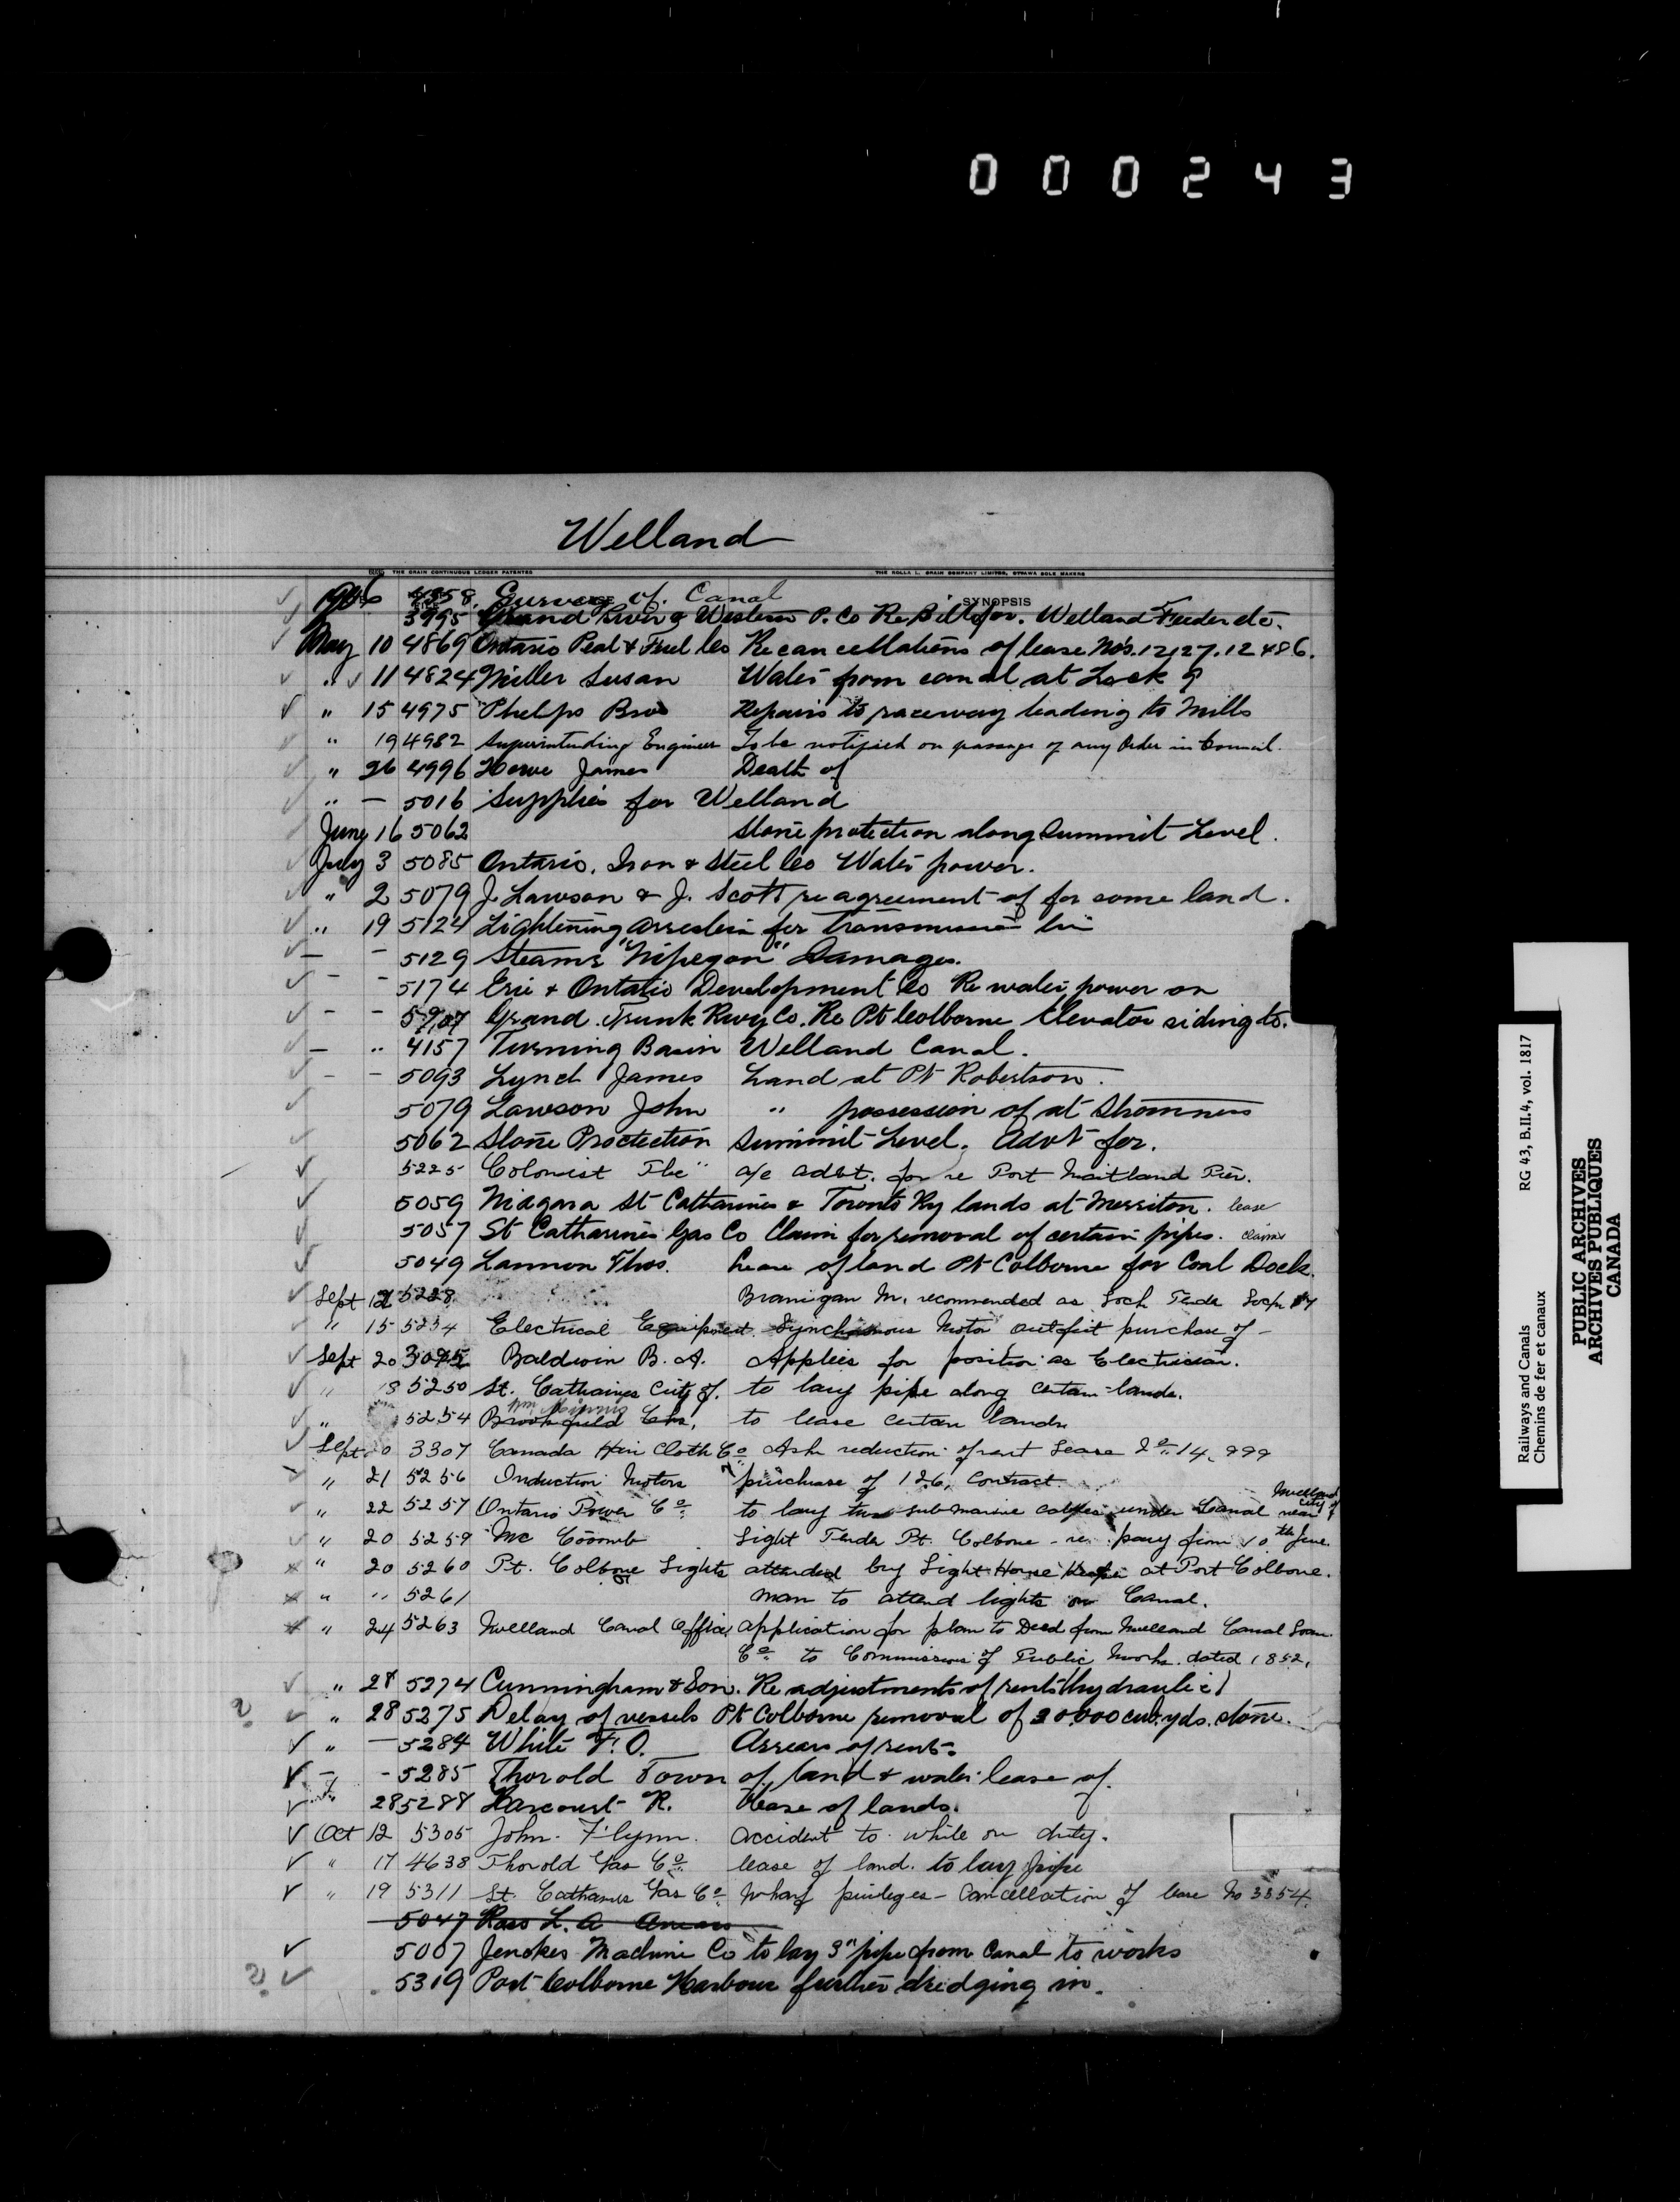 000243
Welland
THE GRAIN CONTINUOUS LEDGER PATENTED THE ROLLA L. GRAIN COMPANY LIMITED, OTTAWA SOLE MAKERS
SYNOPSIS
4558 Survey of Canal
3995 Grand River & Western P. Co Re Bill for. Welland Feeder etc.
May 10 4869 Ontario Peat & Fuel Co Re cancellations of lease No's. 12127. 12486.
" 11 4824 Miller Susan Water from canal at Lock 9
" 15 4975 Phelps Bros Repairs to raceway leading to Mills
" 19 4982 Superintending Engineer To be notified on passage of any Order in Council.
" 26 4996 James Death of
" — 5016 Supplies for Welland
June 16 5062 Stone protection along Summit Level.
July 3 5085 Ontario, Iron & Steel Co Water power.
" 2 5079 J. Lawson & J. Scott re agreement of for some land.
" 19 5124 Lightening arresters for transmission line
— - 5129 Steamer "Nipegon" Damages.
- - 5174 Erie & Ontario Development Co Re water power on
- - Grand Trunk Rwy Co. Re Pt Colborne Elevator siding to.
— " 4157 Turning Basin Welland Canal.
- - 5093 Lynch James Land at Pt Robertson.
5079 Lawson John " possession of at Stromness
5062 Stone Proctection Summit Level. Advt for.
5225 Colonist The" a/c advt. for re Port Maitland Pier.
5059 Niagara St Catharines & Toronto Ry lands at Merriton. lease
5057 St Catharines Gas Co Claim for removal of certain pipes. claims
5049 Lannon Thos. Lease of land Pt Colborne for Coal Dock.
Sept 12 5228 Branigan M. recommended as Lock Tender Lock
" 15 5234 Electrical Equipment Synchronous Motor outfit purchase of -
Sept 20 3095 Baldwin B. A. Applies for position as Electrician.
" 18 5250 St. Catharines City of. to lay pipe along certain lands.
" 5254 Brookfield Chs. to lease certain lands
Sept 20 3307 Canada Hair Cloth Co Ask reduction of rent Lease No. 14,999
" 21 5256 Induction Motors purchase of 126, contract.
" 22 5257 Ontario Power Co. to lay two sub-marine cables under Canal near Welland City of
" 20 5259 Mc Coomb Light Tender Pt. Colborne - re. pay from 10th June.
" 20 5260 Pt. Colborne Lights attended by Light House Keeper at Port Colborne.
" " 5261 man to attend lights on Canal.
" 24 5263 Welland Canal Office application for plan to Deed from Welland Canal Loan
Co. to Commissioners of Public Works. dated 1852.
" 28 5274 Cunningham & Son. Re adjustments of rents (hydraulic)
? " 28 5275 Delay of vessels Pt Colborne removal of 20,000 cub. yds. stone.
" — 5284 White T. O. Arrears of rent.
- - 5285 Thorold Town of land & water lease of.
" 28 5288 Harcourt R. Lease of lands.
Oct 12 5305 John Flynn. accident to while on duty.
" 17 4638 Thorold Gas Co. lease of land. to lay pipe
" 19 5311 St. Catharines Gas Co. Wharf privileges - Cancellation of lease No 3354.
5047 Ross L. A Arrears
5007 Jenckes Machine Co to lay 3" pipe from Canal to works
? 5319 Port Colborne Harbour further dredging in.
Railways and Canals RG 43, B.II.4, vol. 1817
Chemins de fer et canaux
PUBLIC ARCHIVES
ARCHIVES PUBLIQUES
CANADA